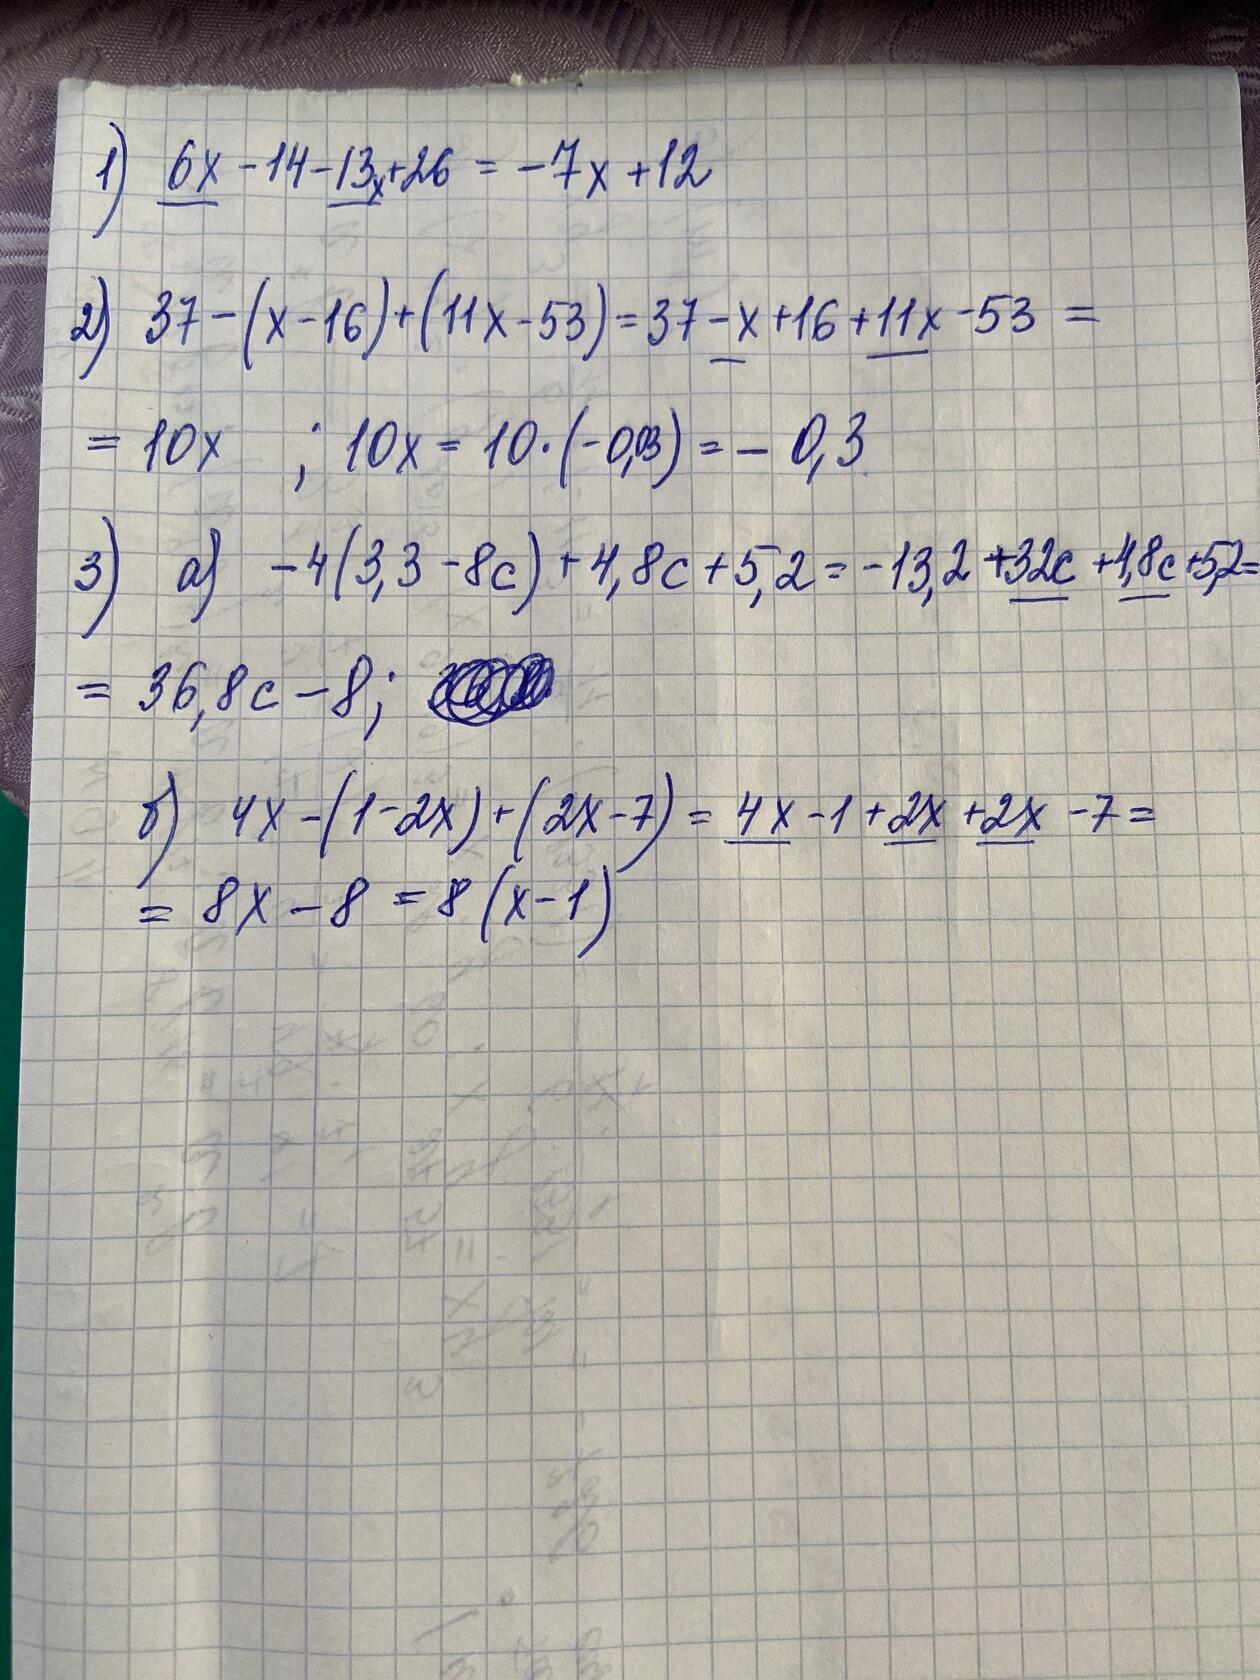 1) 6x - 14 - 13x + 26 = -7x + 12
2) 37 - (x - 16) + (11x - 53) = 37 - x + 16 + 11x - 53 =
= 10x ; 10x = 10 · (-0,03) = - 0,3
3) а) -4(3,3 - 8c) + 4,8c + 5,2 = -13,2 + 32c + 4,8c + 5,2 =
= 36,8c - 8;
б) 4x - (1 - 2x) + (2x - 7) = 4x - 1 + 2x + 2x - 7 =
= 8x - 8 = 8 (x - 1)